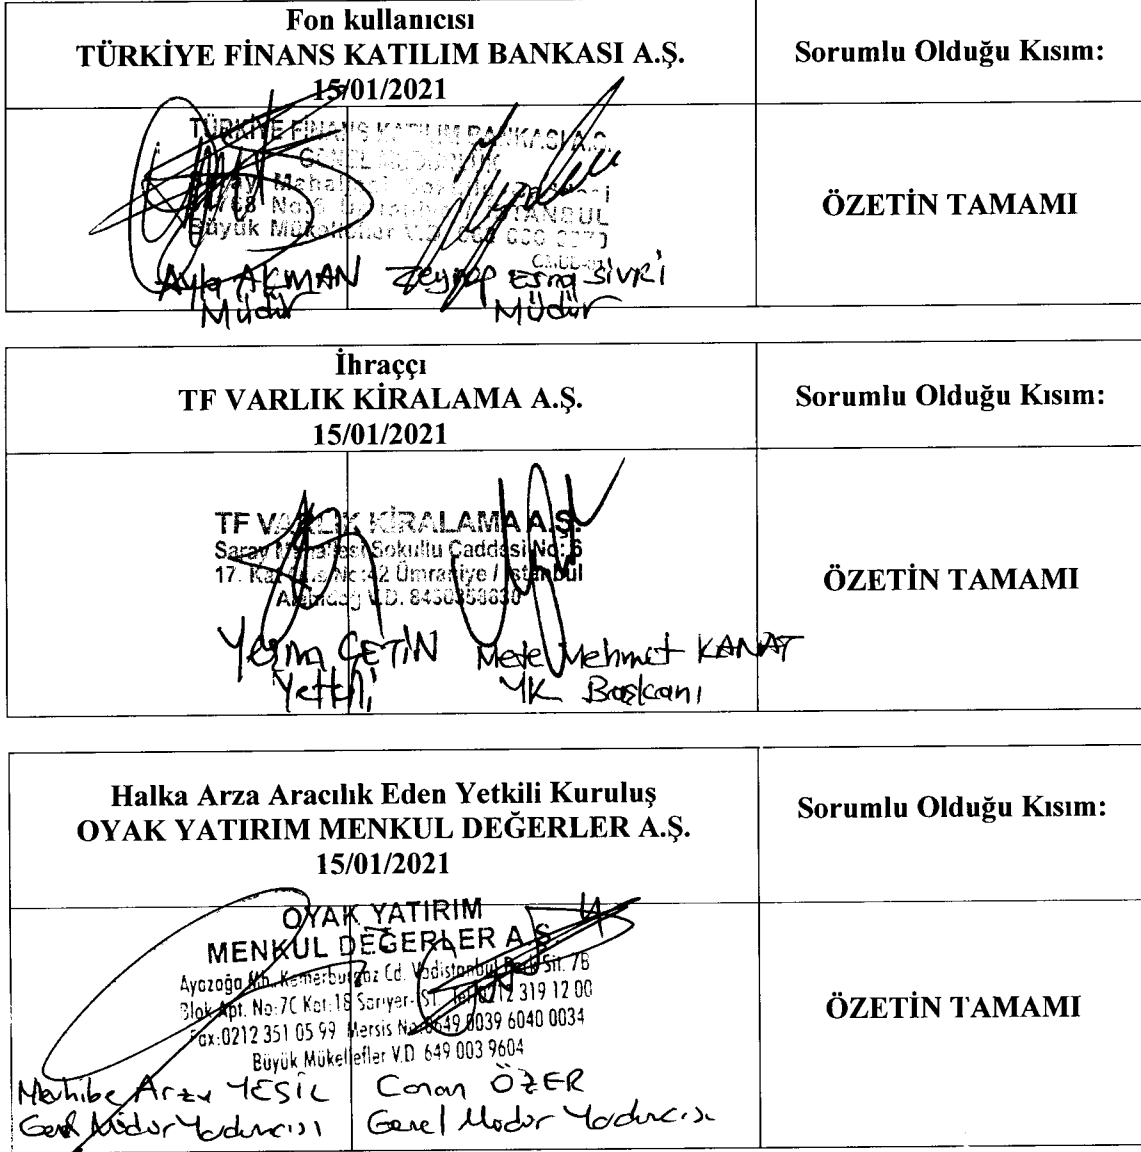 Fon kullanıcısı
TÜRKİYE FİNANS KATILIM BANKASI A.Ş.
15/01/2021
Sorumlu Olduğu Kısım:
TÜRKİYE FİNANS KATILIM BANKASI A.Ş.
GENEL
No:
İSTANBUL
Büyük Mükellefler V.D.
ÖZETİN TAMAMI
Ayla AKMAN
Müdür
Zeynep Esra SİVRİ
Müdür
İhraççı
TF VARLIK KİRALAMA A.Ş.
15/01/2021
Sorumlu Olduğu Kısım:
TF VARLIK KİRALAMA A.Ş.
Saray Mahallesi Sokullu Caddesi No: 6
17. Kat No:42 Ümraniye / İstanbul
V.D.
ÖZETİN TAMAMI
ÇETİN
Yetkili
Mete Mehmet KANAT
YK Başkanı
Halka Arza Aracılık Eden Yetkili Kuruluş
OYAK YATIRIM MENKUL DEĞERLER A.Ş.
15/01/2021
Sorumlu Olduğu Kısım:
OYAK YATIRIM
MENKUL DEĞERLER A.Ş.
Ayazağa Mh. Kemerburgaz Cd. Vadistanbul Park Sit. 7B
Blok Apt. No:7C Kat:18 Sarıyer-İST. Tel:0212 319 12 00
Fax:0212 351 05 99 Mersis No:0649 0039 6040 0034
Büyük Mükellefler V.D. 649 003 9604
ÖZETİN TAMAMI
Mevhibe Arzu YEŞİL
Genel Müdür Yardımcısı
Canan ÖZER
Genel Müdür Yardımcısı